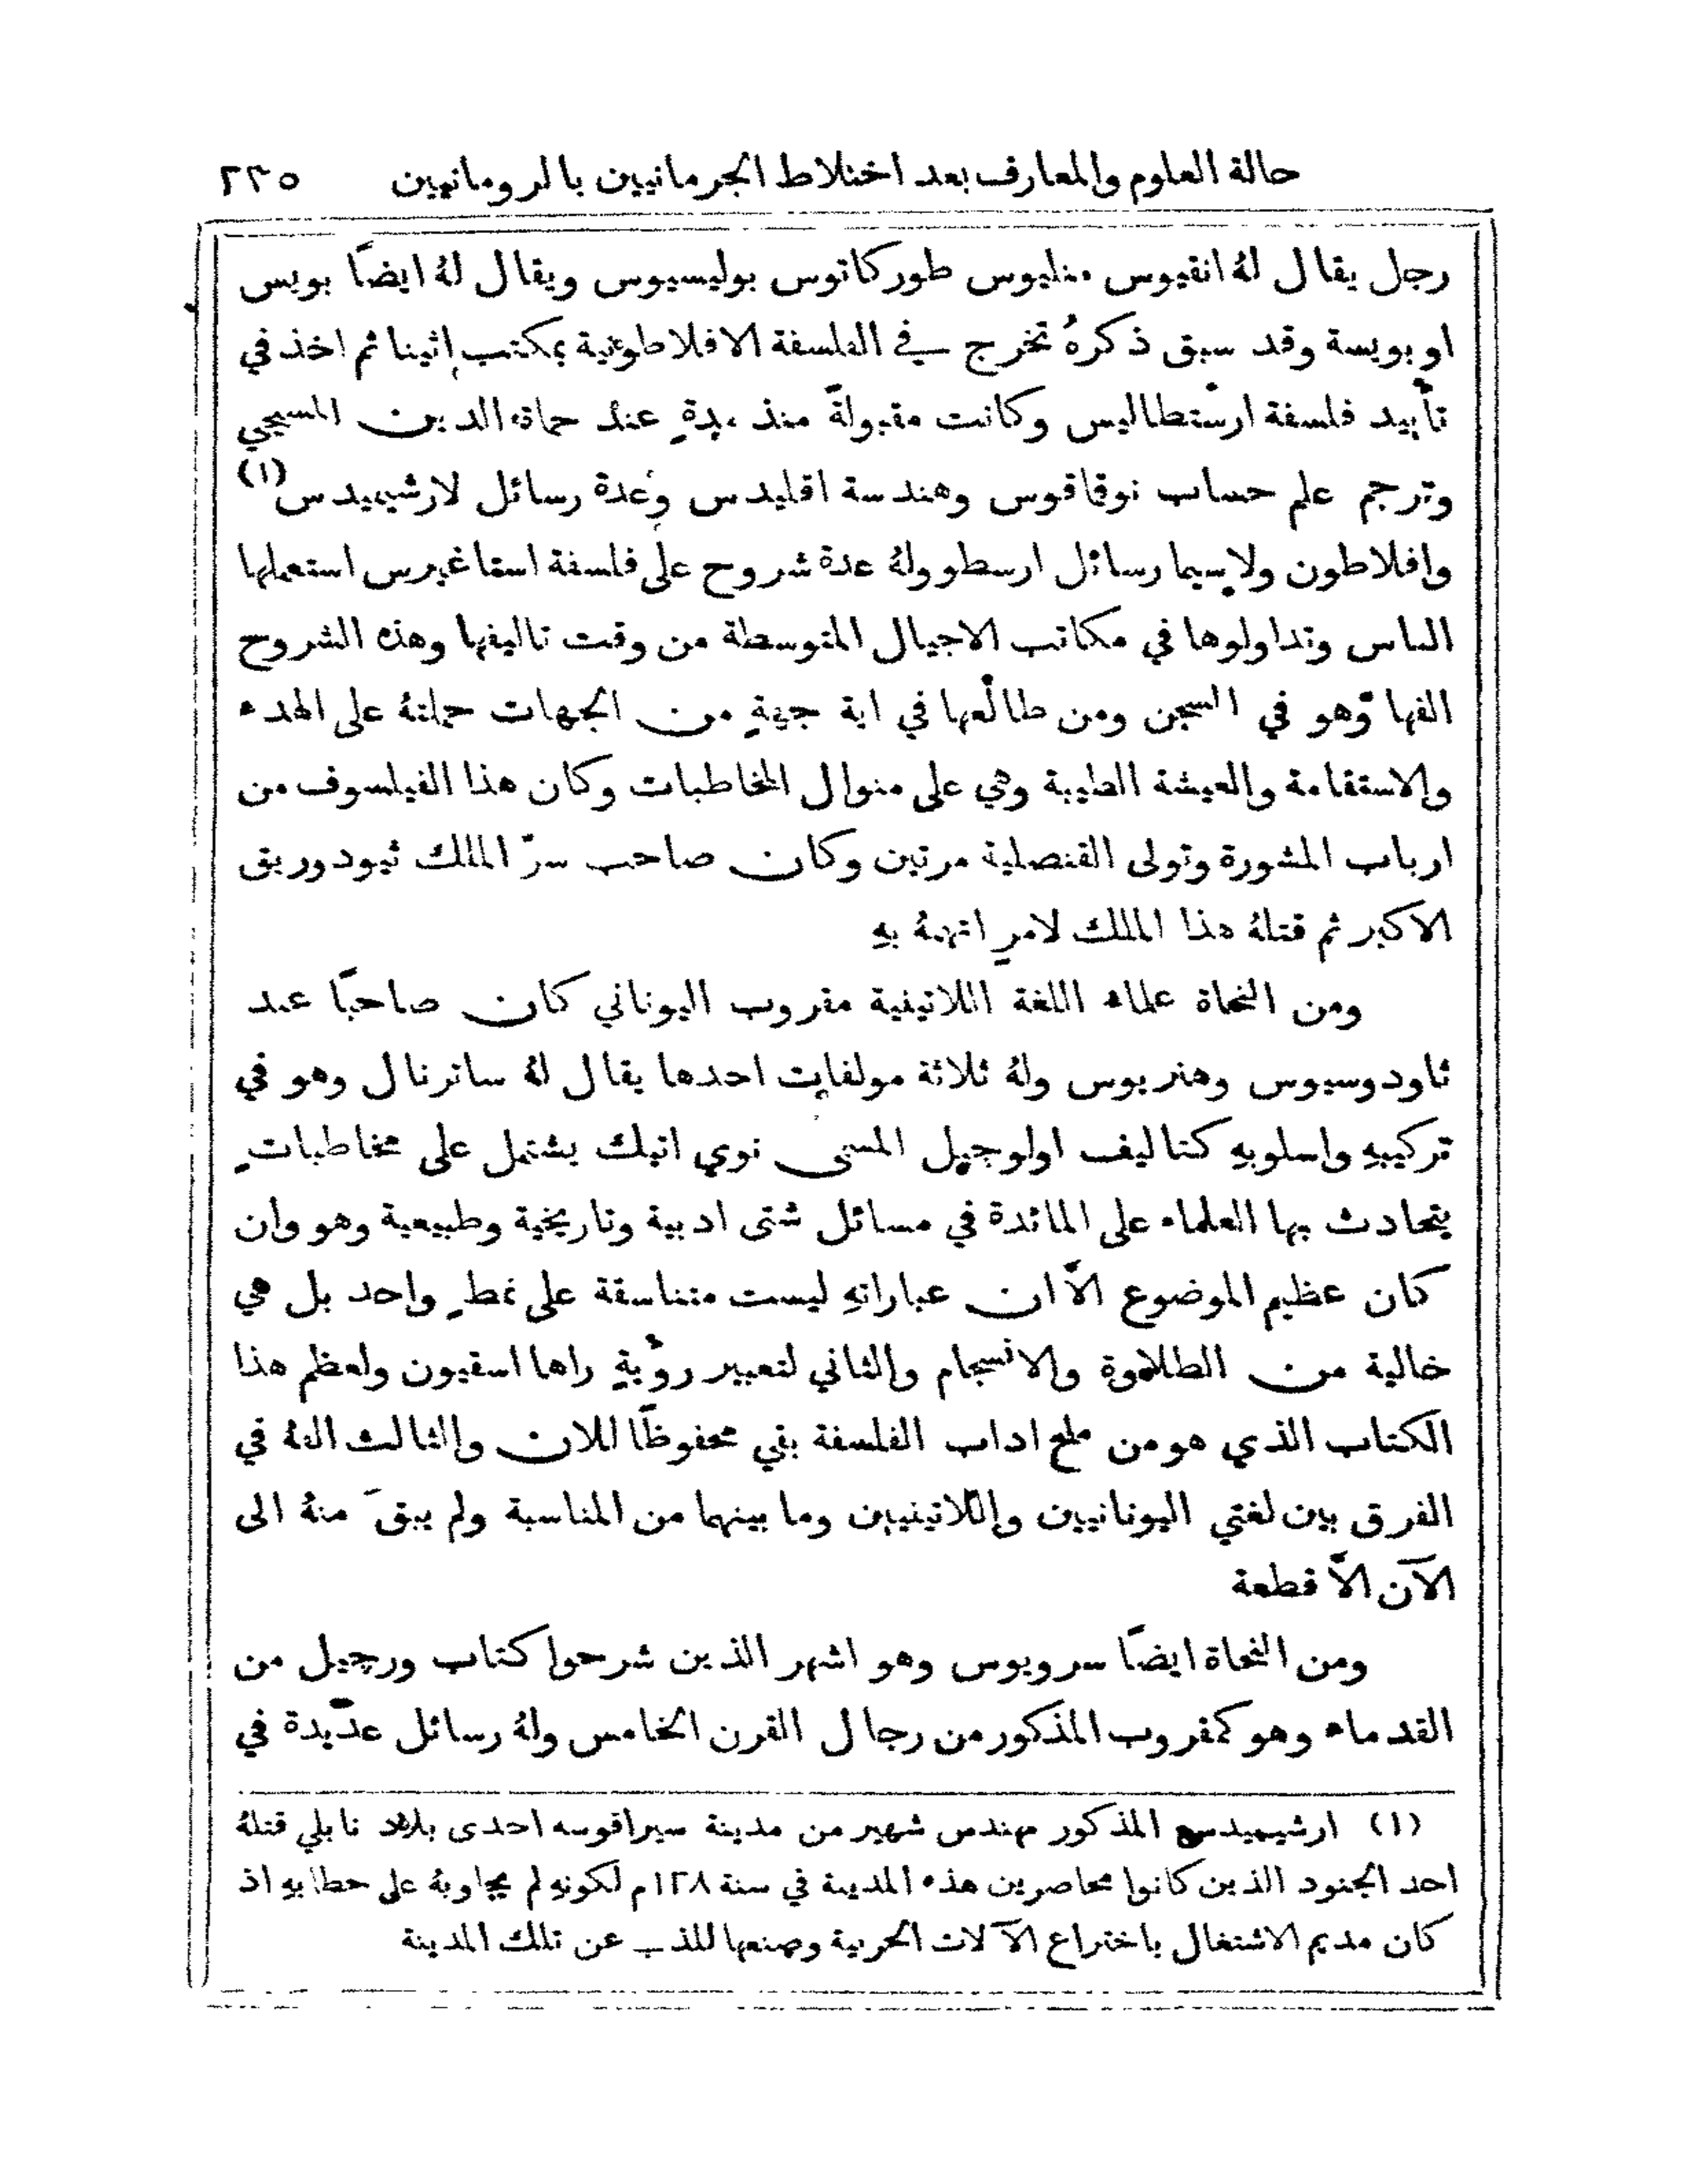 حالة العلوم والمعارف بعد اختلاط الجرمانيين بالرومانيين ٢٣٥
رجل يقال لهُ انقيوس منليوس طوركاتوس بوليسيوس ويقال لهُ ايضًا بويس
او بويسة وقد سبق ذكرهُ تخرج في الفلسفة الافلاطونية بمكتب إثينا ثم اخذ في
تأييد فلسفة ارستطاليس وكانت مقبولةً منذ مدةٍ عند حماة الدين المسيحي
وترجم علم حساب نوقماقوس وهندسة اقليدس وعدة رسائل لارشيميدس (١)
وافلاطون ولاسيما رسائل ارسطو ولهُ عدة شروح على فلسفة استاغيرس استعملها
الناس وتداولوها في مكاتب الاجيال المتوسطة من وقت تاليفها وهذه الشروح
الفها وهو في السجن ومن طالعها في اية جهةٍ من الجهات حملتهُ على الهدء
والاستقامة والعيشة الطيبة وهي على منوال المخاطبات وكان هذا الفيلسوف من
ارباب المشورة وتولى القنصلية مرتين وكان صاحب سرّ الملك ثيودوريق
الاكبر ثم قتلهُ هذا الملك لامرٍ اتهمهُ بهِ
ومن النحاة علماء اللغة اللاتينية مقروب اليوناني كان صاحبًا عند
ثاودوسيوس وهنريوس ولهُ ثلاثة مولفات احدها يقال لهُ ساترنال وهو في
تركيبهِ واسلوبهِ كتاليف اولوجيل المسمى نوي اتيك يشتمل على مخاطباتٍ
يتحادث بها العلماء على المائدة في مسائل شتى ادبية وتاريخية وطبيعية وهو وان
كان عظيم الموضوع الاّ ان عباراتهِ ليست متناسقة على نمطٍ واحد بل هي
خالية من الطلاوة والانسجام والثاني لتعبير رؤيةٍ راها اسقيون ولعظم هذا
الكتاب الذي هو من ملح اداب الفلسفة بقي محفوظًا للان والثالث الفهُ في
الفرق بين لغتي اليونانيين واللاتينيين وما بينهما من المناسبة ولم يبقَ منهُ الى
الآن الاّ قطعة
ومن النحاة ايضًا سرويوس وهو اشهر الذين شرحوا كتاب ورجيل من
القدماء وهو كمقروب المذكور من رجال القرن الخامس ولهُ رسائل عديدة في
(١) ارشيميدس المذكور مهندس شهير من مدينة سيراقوسه احدى بلاد نابلي قتلهُ
احد الجنود الذين كانوا محاصرين هذه المدينة في سنة ١٢٨م لكونهِ لم يجاوبهُ على خطابهِ اذ
كان مديم الاشتغال باختراع الآلات الحربية وصنعها للذب عن تلك المدينة